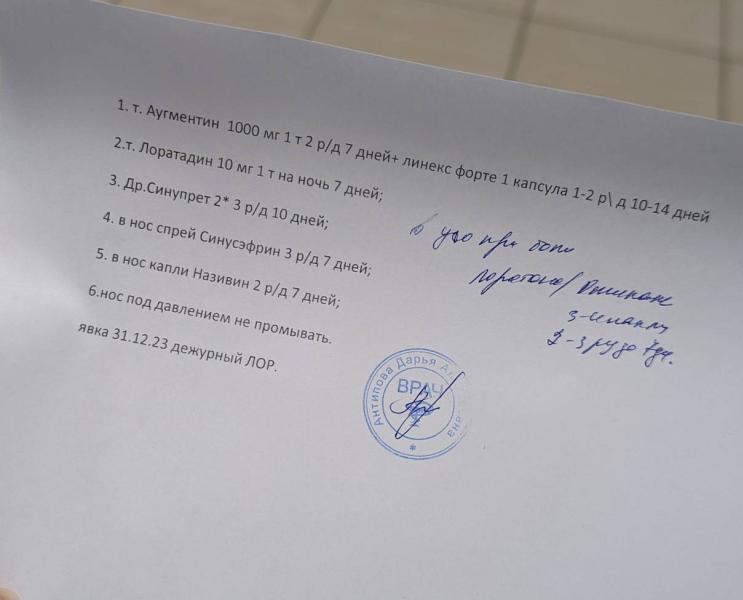 1. т. Аугментин 1000 мг 1 т 2 р/д 7 дней+ линекс форте 1 капсула 1-2 р\ д 10-14 дней
2.т. Лоратадин 10 мг 1 т на ночь 7 дней;
3. Др.Синупрет 2* 3 р/д 10 дней;
4. в нос спрей Синусэфрин 3 р/д 7 дней;
5. в нос капли Називин 2 р/д 7 дней;
6.нос под давлением не промывать.
явка 31.12.23 дежурный ЛОР.
в ухо при боли
/
3-4 капли
2-3 раза 7 дн.
Антипова Дарья
ВРАЧ